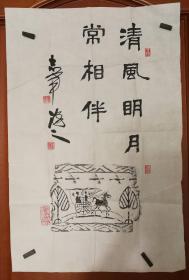 清風明月
常相伴